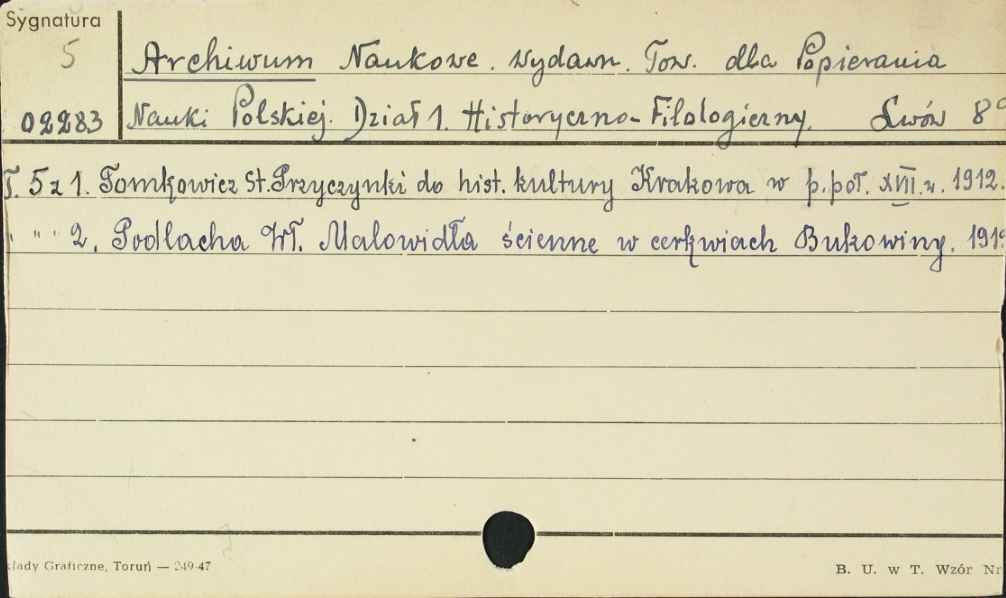 Sygnatura
5
02283
Archiwum Naukowe. Wydawn. Tow. dla Popierania
Nauki Polskiej. Dział 1. Historyczno-Filologiczny. Lwów 8°
T. 5 z 1. Tomkowicz St. Przyczynki do hist. kultury Krakowa w p. poł. XVII w. 1912.
" " " 2. Podlacha Wł. Malowidła ścienne w cerkwiach Bukowiny. 191
kłady Graficzne, Toruń — 249-47
B. U. w T. Wzór Nr